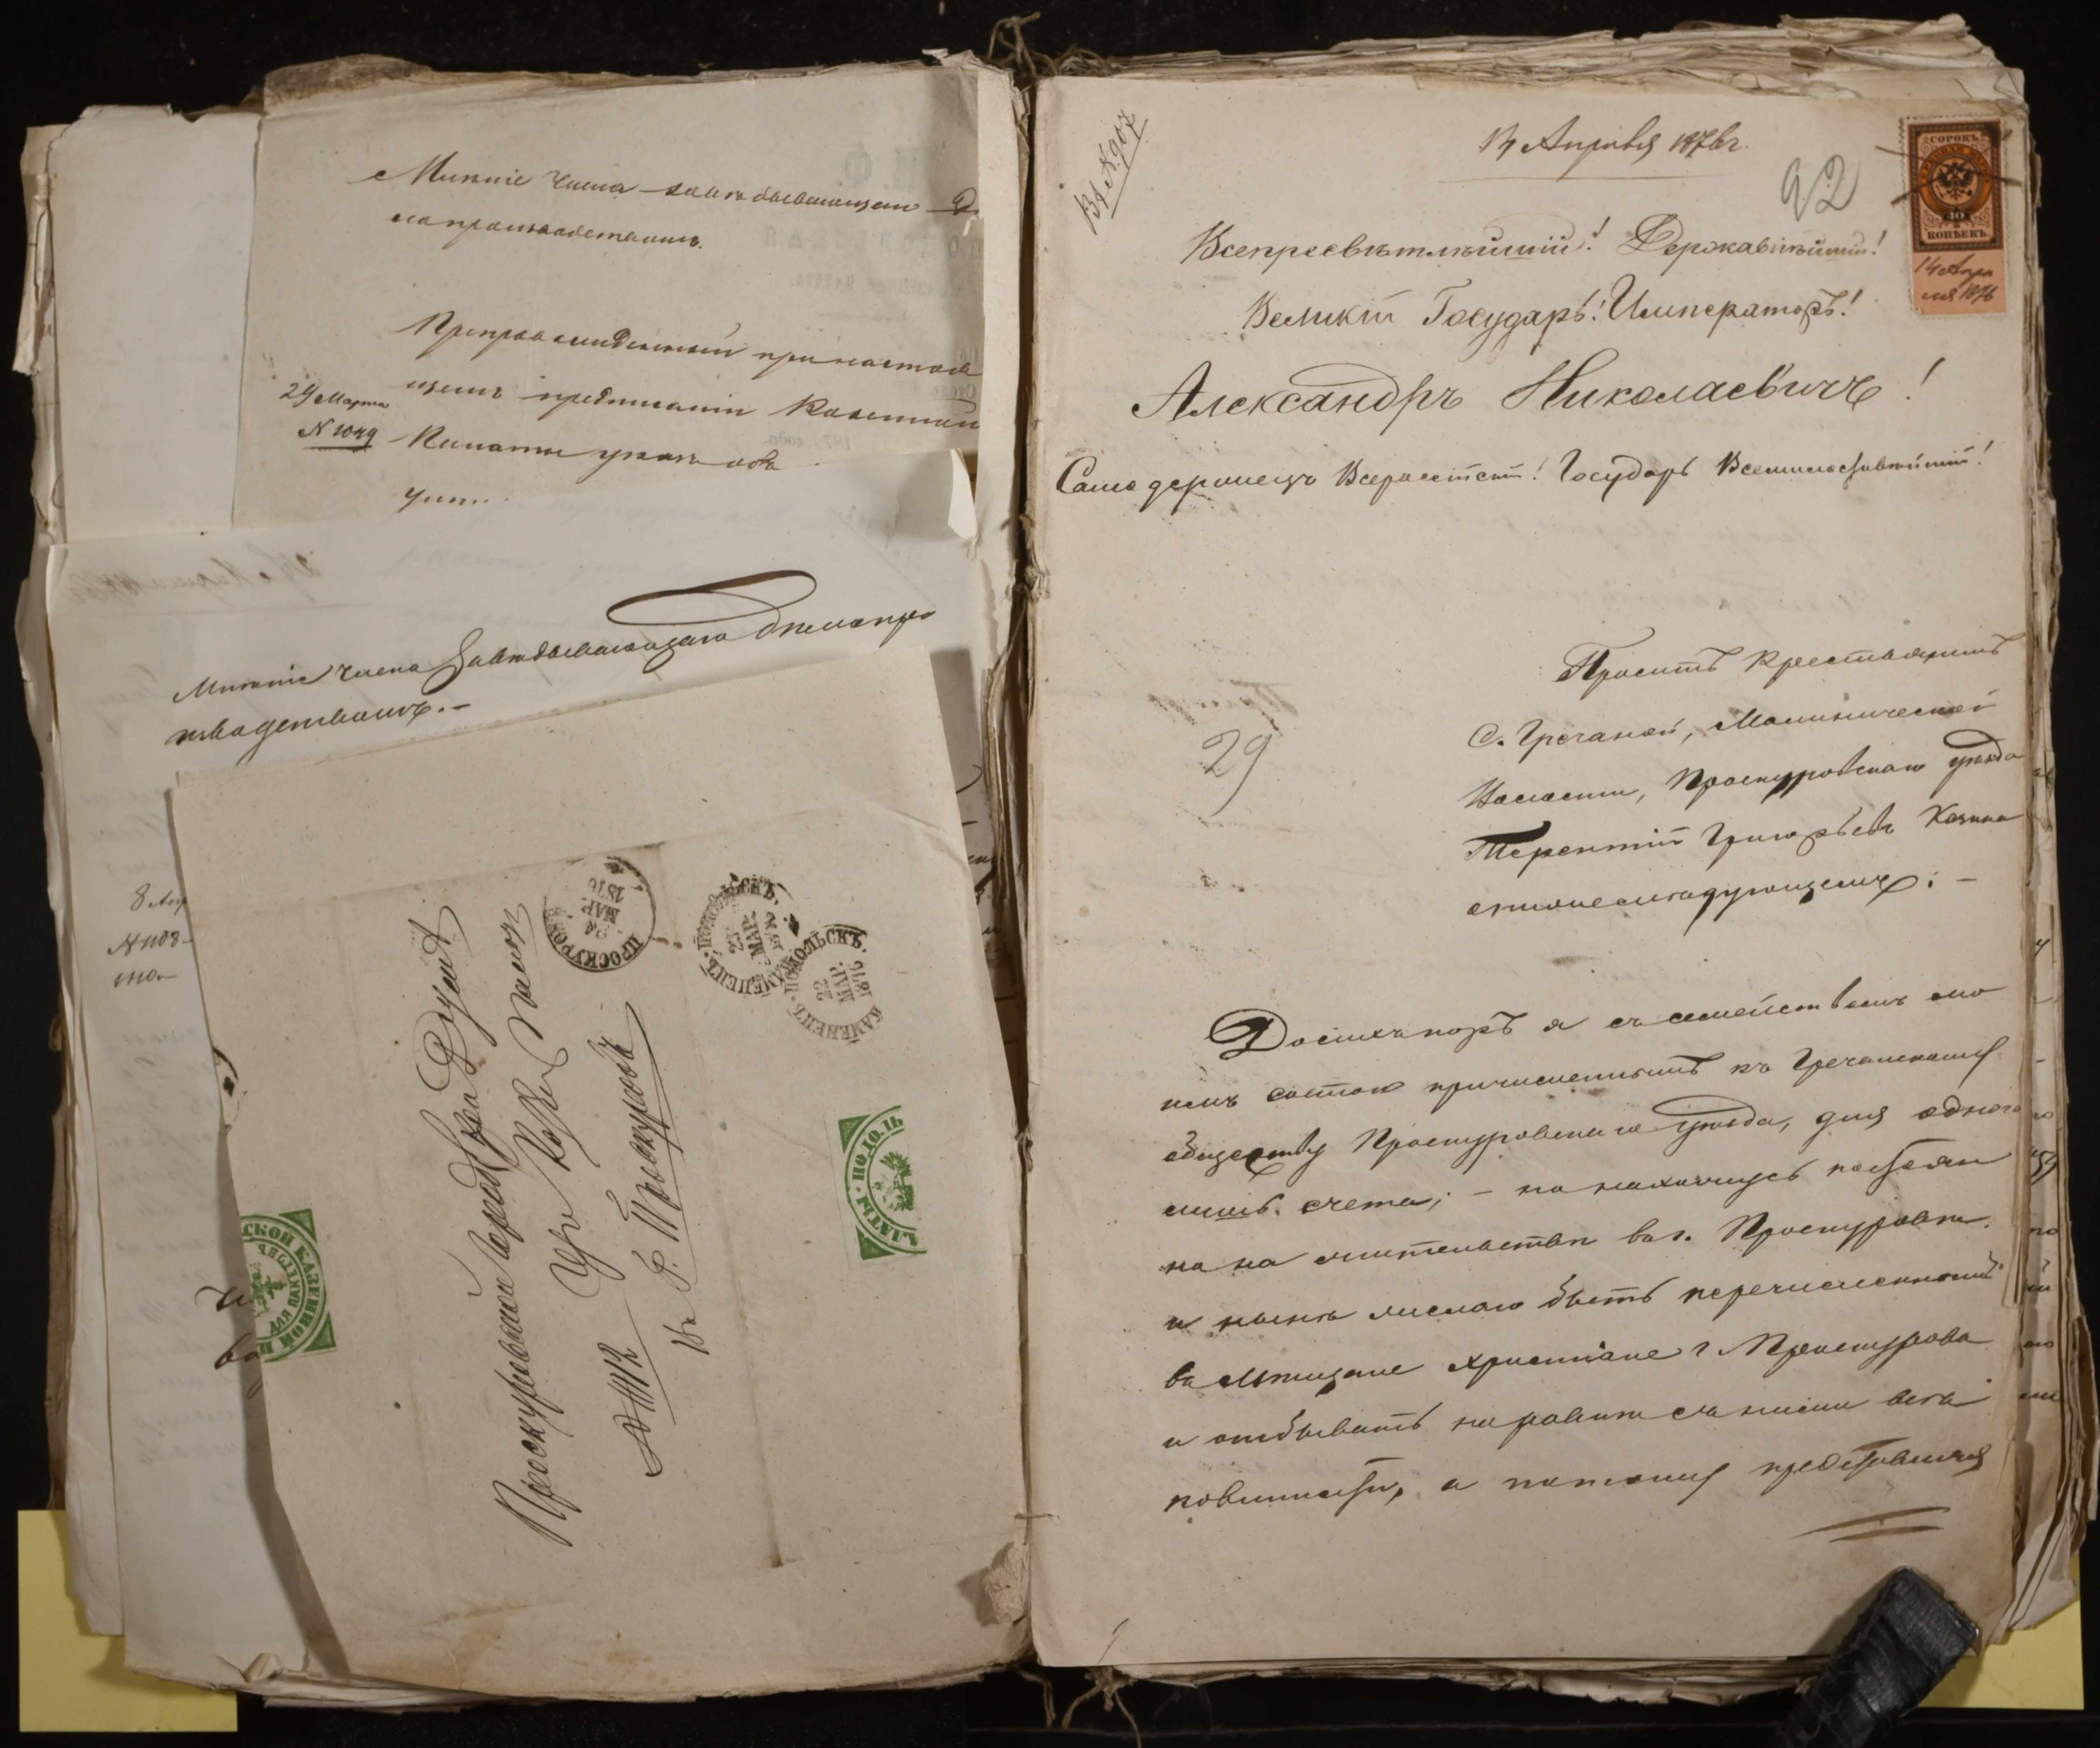 Мнѣніе Члена завѣдывающаго Дѣ
лопроизводствомъ.
Препровожденный при настоя
щемъ предписаніи Казенной
29 Марта
N 1049
Палаты указъ объ
Мнѣніе Члена Завѣдывающаго дѣлопро
изводствомъ.-
8 Апр
N 1108
Проскуровской Городской Думѣ
N 4112
Въ Г. Проскуровъ
ПРОСКУРОВЪ
24 МАР. 1876
КАМЕНЕЦЪ-ПОДОЛЬСКЪ.
22 МАР. 1876
КАМЕНЕЦЪ-ПОДОЛЬСКЪ.
СКОЙ КАЗЕННОЙ
ДЛЯ ПАКЕТОВЪ
ЛАТЫ · ПОДОЛЬ
Вх. N. 907
14 Апрѣля 1876 г.
22
СОРОКЪ
40
КОПѢЕКЪ
14 Апрѣ
ля 1876
Всепресвѣтлѣйшій! Державнѣйшій!
Великій Государь! Императоръ!
Александръ Николаевичъ!
Самодержецъ Всероссійскій! Государь Всемилостивѣйшій!
Проситъ Крестьянинъ
С. Гречаной, Малиничской
29
Волости, Проскуровскаго уѣзда
Терентій Григорьевъ
о нижеслѣдующемъ: -
До сихъ поръ я съ семействомъ мо
имъ состою причисленнымъ къ Гречанскому
обществу Проскуровскаго уѣзда, для одного
лишь счета; - но нахожусь постоян
но на жительствѣ въ г. Проскуровѣ
и нынѣ желаю быть перечисленнымъ
въ мѣщане христіане г. Проскурова
и отбывать на равнѣ съ ними всѣ
повинности, а потому представляя